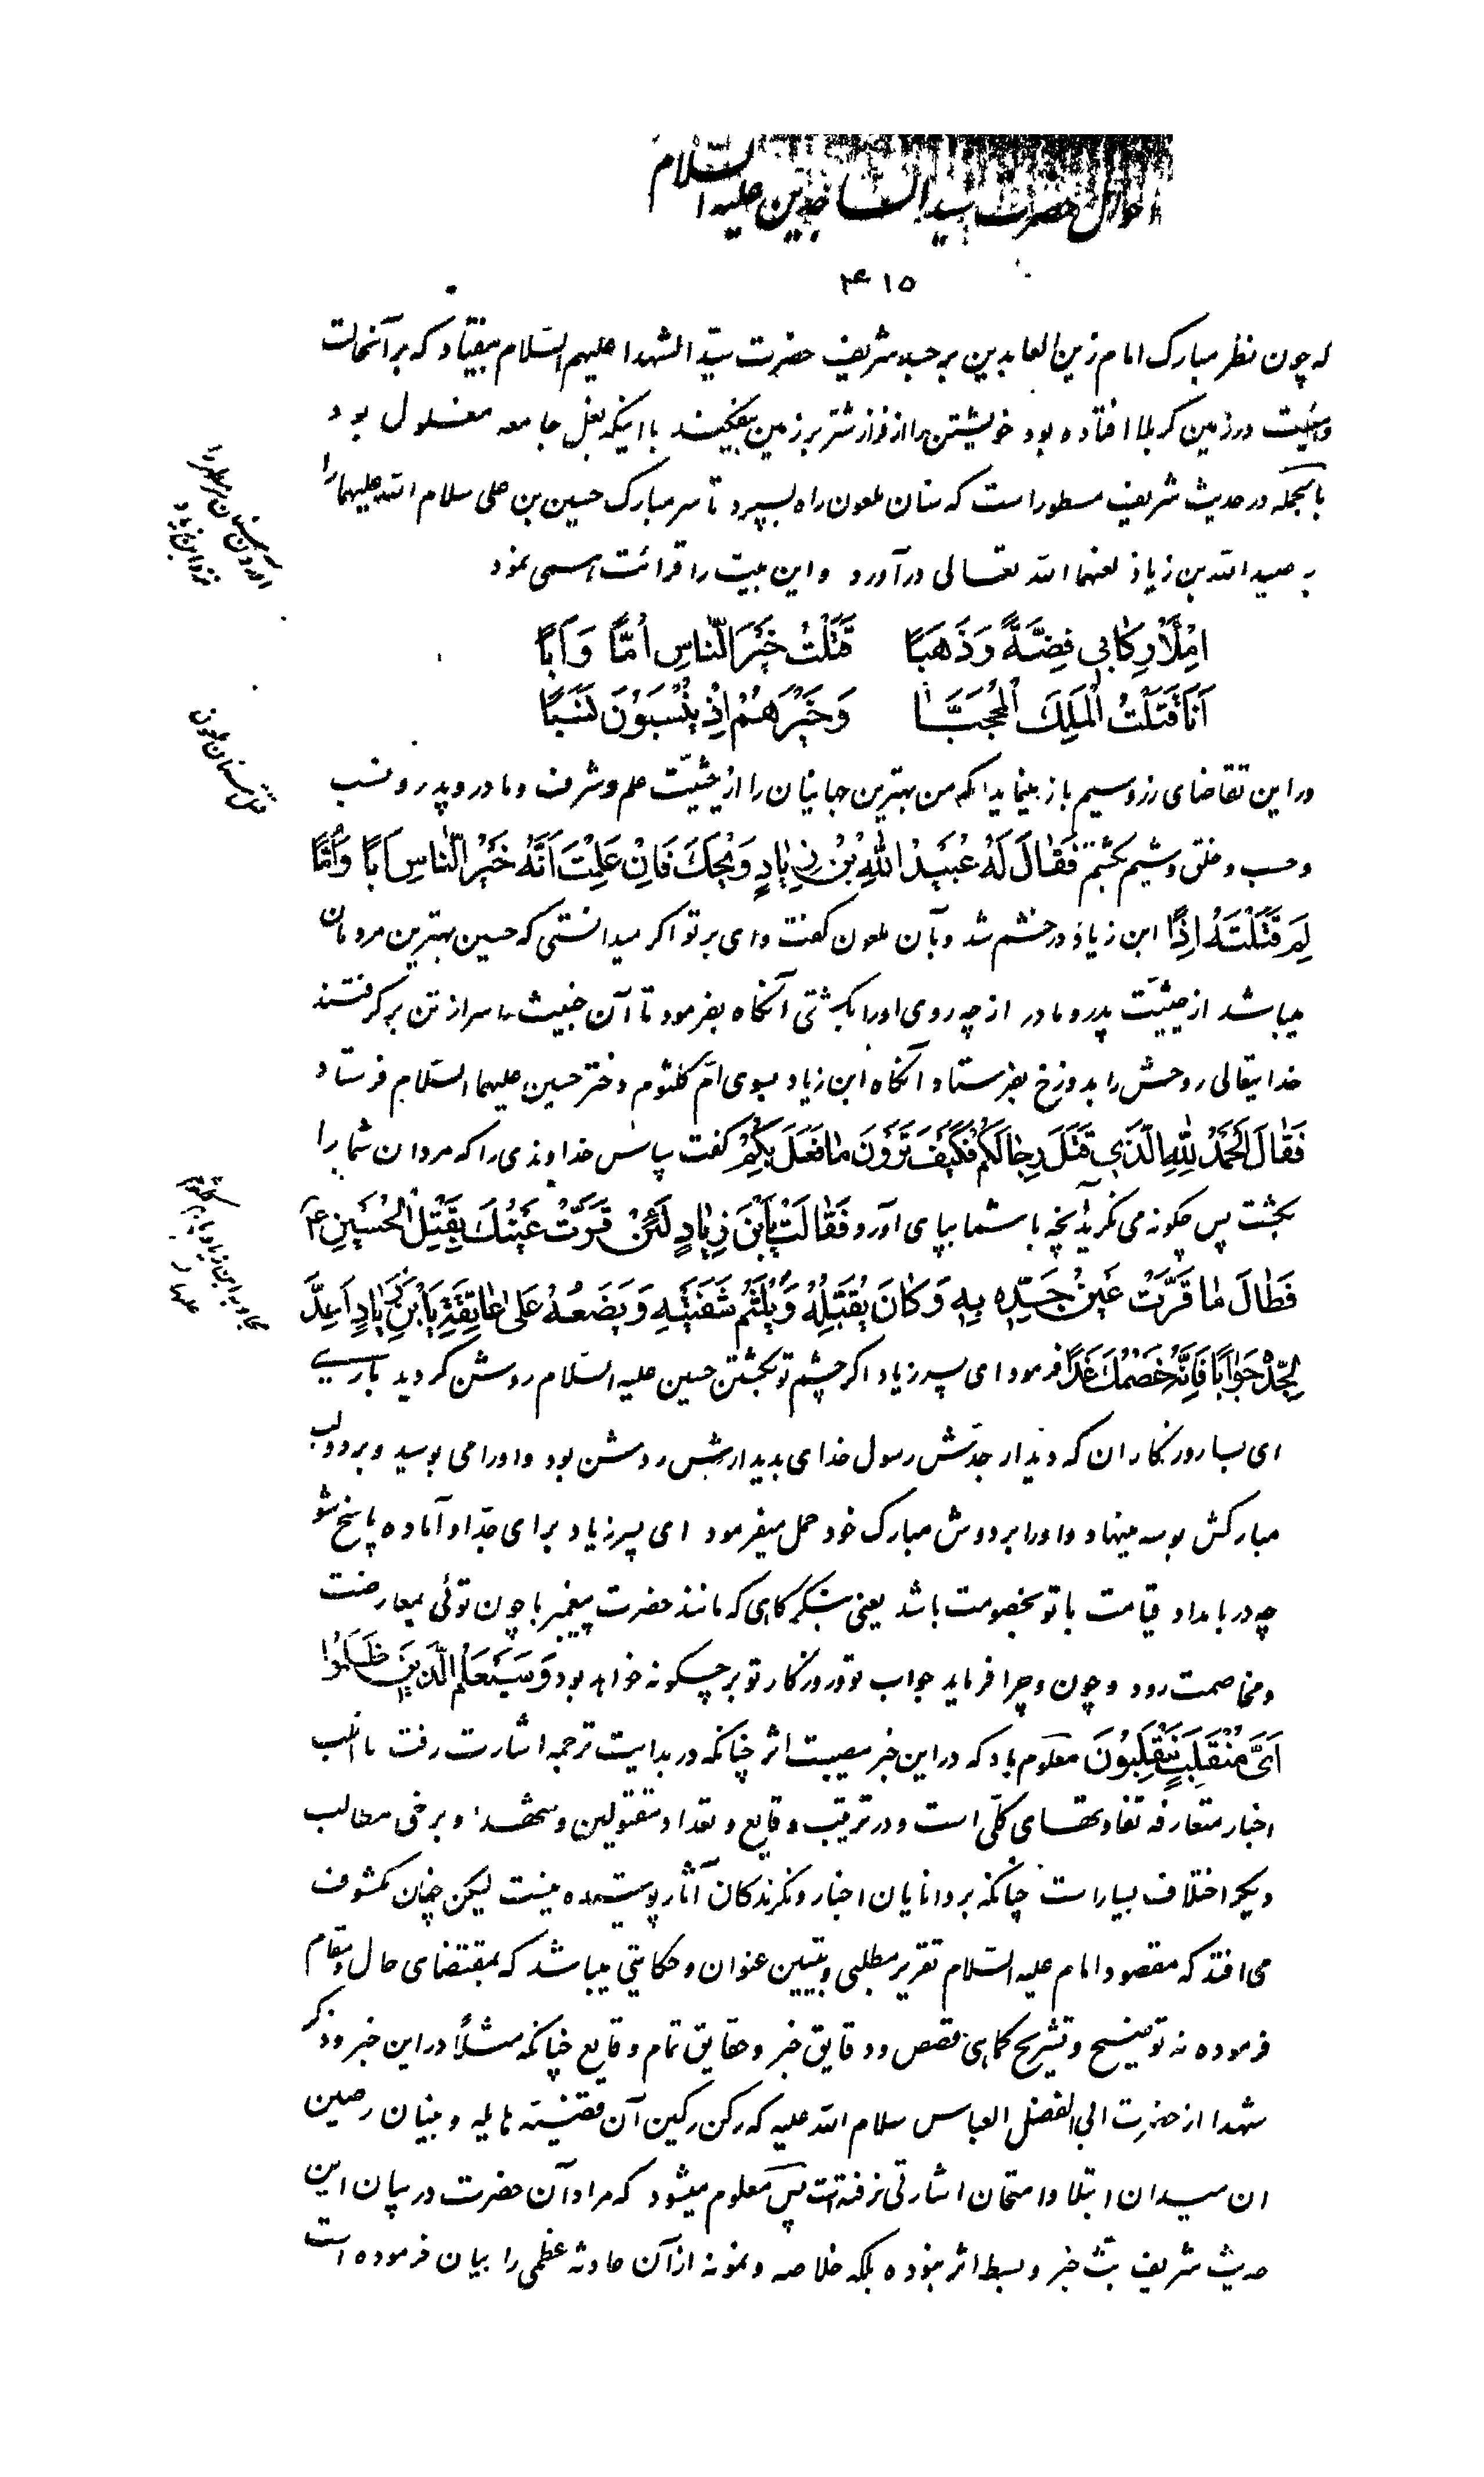 احوال حضرت سید الساجدین علیه السلام
۴۱۵
که چون نظر مبارک امام زین العابدین بر جسد شریف حضرت سیّد الشهدا علیهم السّلام بیفتاد که بر آنحالت
در زمین کربلا افتاده بود خویشتن را از فراز شتر بر زمین بیفکند با اینکه بغل جامعه مغلول بود
بالجمله در حدیث شریف مسطور است که سنان ملعون راه بسپرد تا سر مبارک حسین بن علی سلام الله علیهما را
بر عبید الله بن زیاد لعنهما الله تعالی در آورد و این بیت را قرائت همی نمود
اِمْلَأْ رِکٰابِی فِضَّةً وَذَهَبًا قَتَلْتُ خَیْرَ النّاسِ اُمًّا وَ اَبًا
اَنَا قَتَلْتُ الْمَلِکَ الْمُحَجَّبَا وَخَیْرَهُمْ اِذْ یُنْسَبُونَ نَسَبًا
در این تقاضای زر و سیم باز مینماید که من بهترین جهانیان را از حیثیّت علم و شرف و مادر و پدر و نسب
و حسب و خلق و شیم بکشتم فَقٰالَ لَهُ عُبَیْدُ اللّٰهِ بْنُ زِیٰادٍ وَیْحَکَ فَاِنْ عَلِمْتَ اَنَّهُ خَیْرُ النّاسِ اَبًا وَ اُمًّا
لِمَ قَتَلْتَهُ اِذًا ابن زیاد در خشم شد و بآن ملعون گفت وای بر تو اگر میدانستی که حسین بهترین مردمان
میباشد از حیثیّت پدر و مادر از چه روی او را بکشتی آنگاه بفرمود تا آن خبیث را سر از تن بر گرفتند
خدایتعالی روحش را بدوزخ بفرستاد آنگاه ابن زیاد بسوی امّ کلثوم دختر حسین علیهما السّلام فرستاد
فَقٰالَ الْحَمْدُ لِلّٰهِ الَّذِی قَتَلَ رِجٰالَکُمْ فَکَیْفَ تَرَوْنَ مٰا فَعَلَ بِکُمْ گفت سپاس خداوندی را که مردان شما را
بکشت پس چگونه می نگرید آنچه با شما بپای آورد فَقٰالَتْ یَابْنَ زِیٰادٍ لَئِنْ قَرَّتْ عَیْنُکَ بِقَتْلِ الْحُسَیْنِ ع
فَطٰالَ مٰا قَرَّتْ عَیْنُ جَدِّهِ بِهِ وَ کٰانَ یُقَبِّلُهُ وَ یَلْثَمُ شَفَتَیْهِ وَ یَضَعُهُ عَلیٰ عٰاتِقِهِ یَابْنَ زِیٰادٍ اَعِدَّ
لِجَدِّهِ جَوٰابًا فَاِنَّهُ خَصْمُکَ غَدًا فرمود ای پسر زیاد اگر چشم تو بکشتن حسین علیه السّلام روشن گردید باری
ای بسا روزگاران که دیدار جدّش رسول خدای بدیدارش روشن بود و او را می بوسید و بر دو لب
مبارکش بوسه مینهاد و او را بر دوش مبارک خود حمل میفرمود ای پسر زیاد برای جدّ او آماده پاسخ شو
چه در بامداد قیامت با تو بخصومت باشد یعنی بنگر گاهی که مانند حضرت پیغمبر با چون توئی بمعارضت
و مخاصمت رود و چون و چرا فرماید جواب تو و روزگار تو بر چگونه خواهد بود وَ سَیَعْلَمُ الَّذِینَ ظَلَمُوا
اَیَّ مُنْقَلَبٍ یَنْقَلِبُونَ معلوم باد که در این خبر مصیبت اثر چنانکه در بدایت ترجمه اشارت رفت با اغلب
اخبار متعارفه تفاوتهای کلّی است و در ترتیب وقایع و تعداد مقتولین و شهدا و برخی مطالب
دیگر اختلاف بسیار است چنانکه بر دانایان اخبار و نگرندگان آثار پوشیده نیست لیکن چنان مکشوف
می افتد که مقصود امام علیه السّلام تقریر مطلبی و تبیین عنوان و حکایتی میباشد که بمقتضای حال و مقام
فرموده نه توضیح و تشریح تمامی قصص و دقایق خبر و حقایق تمام وقایع چنانکه مثلاً در این خبر و ذکر
شهدا از حضرت ابی الفضل العباس سلام الله علیه که رکن رکین آن قضیّه هایله و بنیان رصین
آن میدان ابتلا و امتحان اشارتی نرفته است پس معلوم میشود که مراد آن حضرت در بیان این
حدیث شریف بثّ خبر و بسط اثر نبوده بلکه خلاصه و نمونه از آن حادثه عظمی را بیان فرموده است
آوردن سنان سر مطهر را
نزد ابن زیاد
قتل سنان ملعون